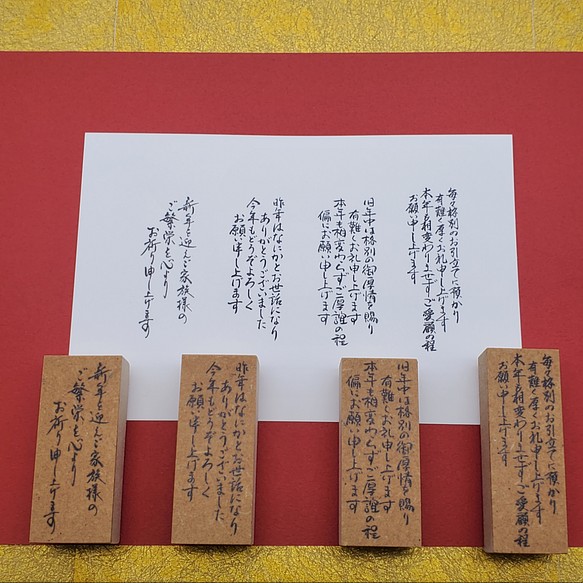 毎々格別のお引立てに預かり
有難く厚くお礼申し上げます
本年も相変わりませずご愛顧の程
お願い申し上げます
旧年中は格別の御厚情を賜り
有難くお礼申し上げます
本年も相変わらずご厚誼の程
偏にお願い申し上げます
昨年はなにかとお世話になり
ありがとうございました
今年もどうぞよろしく
お願い申し上げます
新年を迎えご家族様の
ご繁栄を心より
お祈り申し上げます
毎々格別のお引立てに預かり
有難く厚くお礼申し上げます
本年も相変わりませずご愛顧の程
お願い申し上げます
旧年中は格別の御厚情を賜り
有難くお礼申し上げます
本年も相変わらずご厚誼の程
偏にお願い申し上げます
昨年はなにかとお世話になり
ありがとうございました
今年もどうぞよろしく
お願い申し上げます
新年を迎えご家族様の
ご繁栄を心より
お祈り申し上げます